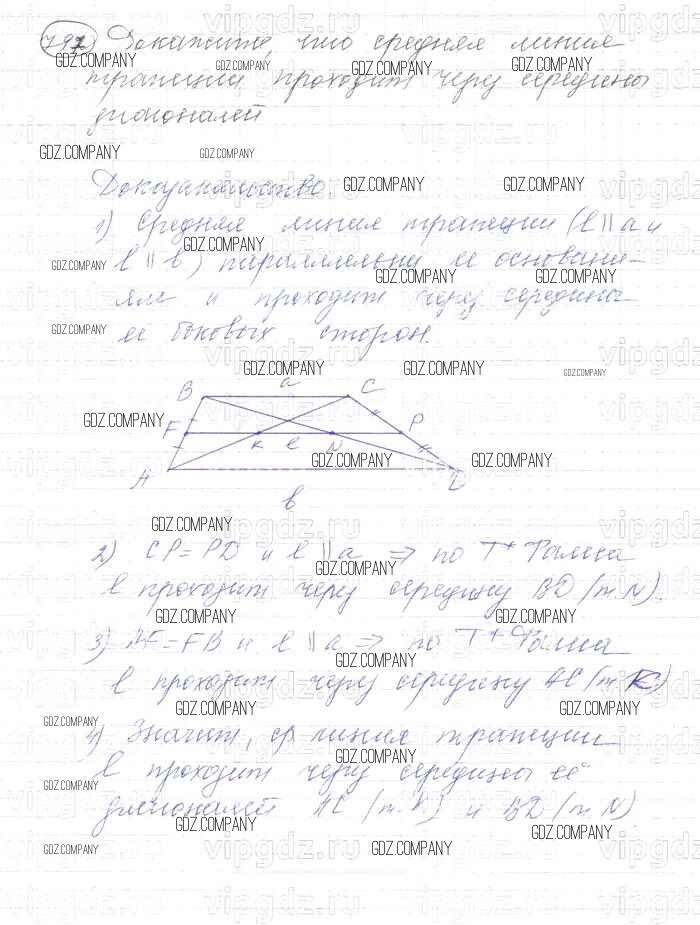 797 Докажите, что средняя линия
трапеции проходит через середины
диагоналей
Доказательство.
1) Средняя линия трапеции (l || a и
l || b) параллельны ее основани-
ям и проходит через середины
ее боковых сторон.
B a C
F K l N P
A D
b
2) CP = PD и l || a ⇒ по Т. Фалеса
l проходит через середину BD (т. N).
3) AF = FB и l || a ⇒ по Т. Фалеса
l проходит через середину AC (т. K)
4) Значит, ср линия трапеции
l проходит через середины ее
диагоналей AC (т. K) и BD (т. N)
GDZ.COMPANY
vipgdz.ru